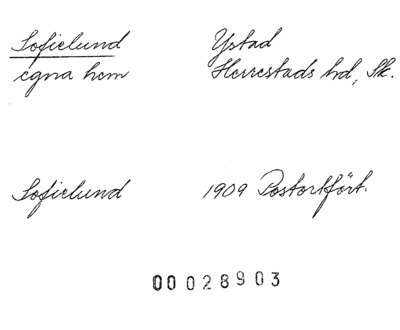 Sofielund Ystad
egna hem Herrestads hd, Sk.
Sofielund 1909 Postortfört.
00028903